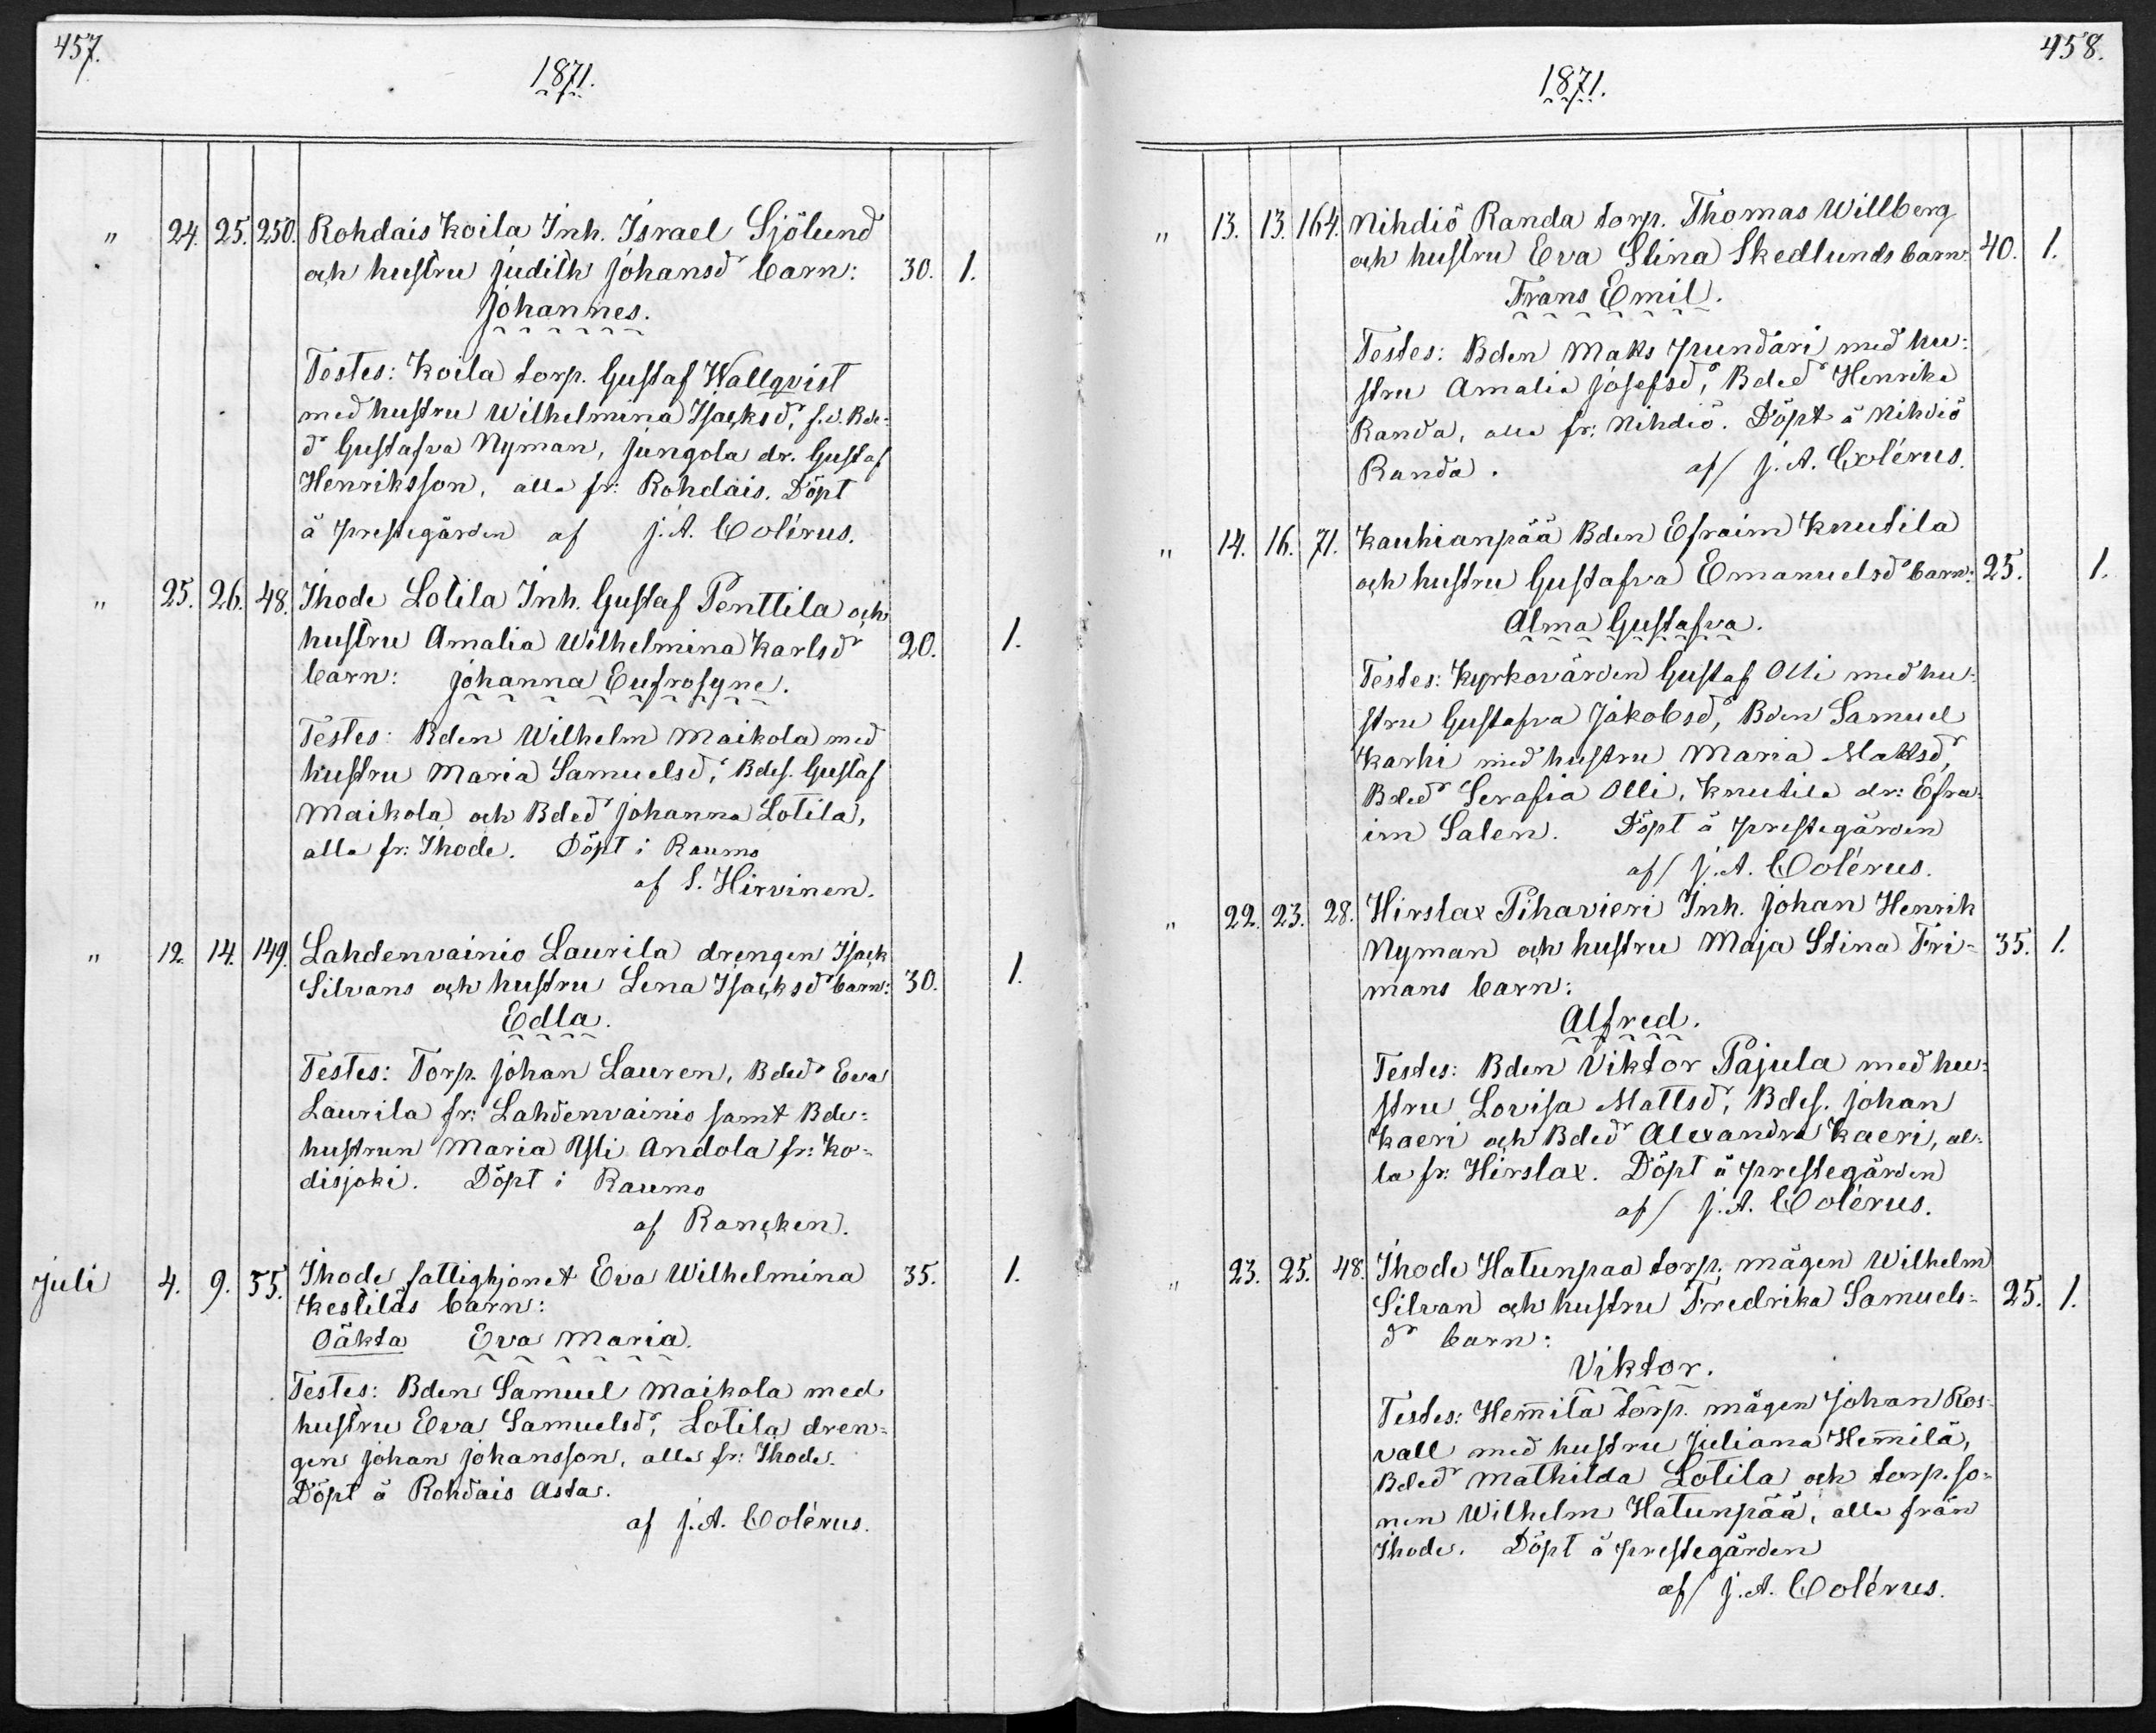 457.
1871.
" 24. 25. 250. Rohdais Koila Inh. Israel Sjölund
och hustru Judith Johansdr barn: 30. 1.
Johannes.
Testes: Koila torp. Gustaf Wallqvist
med hustru Wilhelmina Isacksdr, f.d. Bde-
dr Gustafva Nyman, Jungola dr. Gustaf
Henriksson, alla fr: Rohdais. Döpt
å prestegården af J. A. Colérus.
" 25. 26. 48. Ihode Lotila Inh. Gustaf Penttila och
hustru Amalia Wilhelmina Karlsdr 20. 1.
barn: Johanna Eufrosyne.
Testes: Bden Wilhelm Maikola med
hustru Maria Samuelsdr, Bdes. Gustaf
Maikola och Bdedr Johanna Lotila,
alla fr: Ihode. Döpt i Raumo
af S. Hirvinen.
" 12. 14. 149. Lahdenvainio Laurila drengen Isack
Silvans och hustru Lena Isacksdr barn: 30. 1.
Edla.
Testes: Torp. Johan Lauren, Bdedr Eva
Laurila fr: Lahdenvainio samt Bde-
hustrun Maria Yli Andola fr: Ko-
disjoki. Döpt i Raumo
af Rancken.
Juli 4. 9. 55. Ihode fattighjonet Eva Wilhelmina 35. 1.
Kestiläs barn:
Oäkta Eva Maria.
Testes: Bden Samuel Maikola med
hustru Eva Samuelsdr, Lotila dren-
gen Johan Johansson, alla fr: Ihode.
Döpt å Rohdais Asta.
af J. A. Colérus.
458.
1871.
" 13. 13. 164. Nihdiö Randa torp. Thomas Willberg
och hustru Eva Stina Skedlunds barn: 40. 1.
Frans Emil.
Testes: Bden Maks Pundari med hu-
stru Amalia Josefsdr, Bdedr Henrika
Randa, alla fr: Nihdiö. Döpt å Nihdiö
Randa. af J. A. Colérus.
" 14. 16. 71. Kauhianpää Bden Efraim Knutila
och hustru Gustafva Emanuelsdr barn: 25. 1.
Alma Gustafva.
Testes: Kyrkovärden Gustaf Olli med hu-
stru Gustafva Jakobsdr, Bden Samuel
Karhi med hustru Maria Mattsdr,
Bdedr Serafia Olli, Knutila dr: Efra-
im Salen. Döpt å prestegården
af J. A. Colérus.
" 22. 23. 28. Hirslax Pihavieri Inh. Johan Henrik
Nyman och hustru Maja Stina Fri- 35. 1.
mans barn:
Alfred.
Testes: Bden Viktor Pajula med hu-
stru Lovisa Mattsdr, Bdes. Johan
Kaeri och Bdedr Alexandra Kaeri, al-
la fr: Hirslax. Döpt å prestegården
af J. A. Colérus.
" 23. 25. 48. Ihode Hatunpaa torp. mågen Wilhelm
Silvan och hustru Fredrika Samuels- 25. 1.
dr barn:
Viktor.
Testes: Hem̄ila torp. mågen Johan Ros-
vall med hustru Juliana Hem̄ilä,
Bdedr Mathilda Lotila och torp. so-
nen Wilhelm Hatunpää, alla från
Ihode. Döpt å prestegården
af J. A. Colérus.